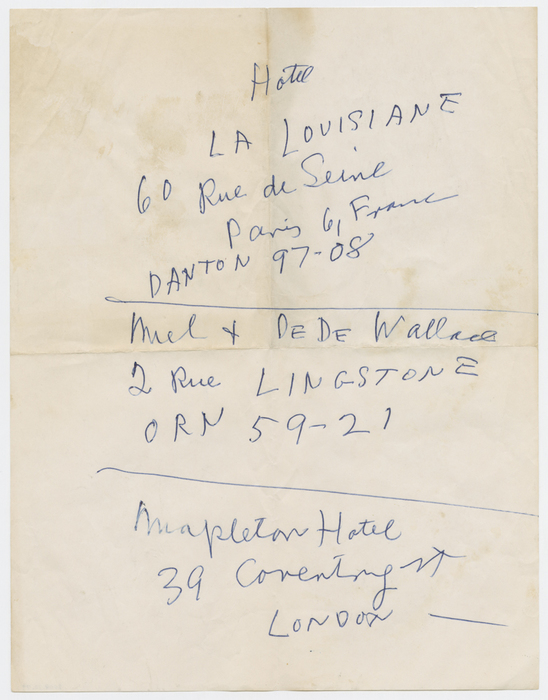 Hotel
LA LOUISIANE
60 Rue de Seine
Paris 6, France
DANTON 97-08
Mel + DEDE Wallace
2 Rue LINGSTONE
ORN 59-21
Mapleton Hotel
39 Coventry st
LONDON —